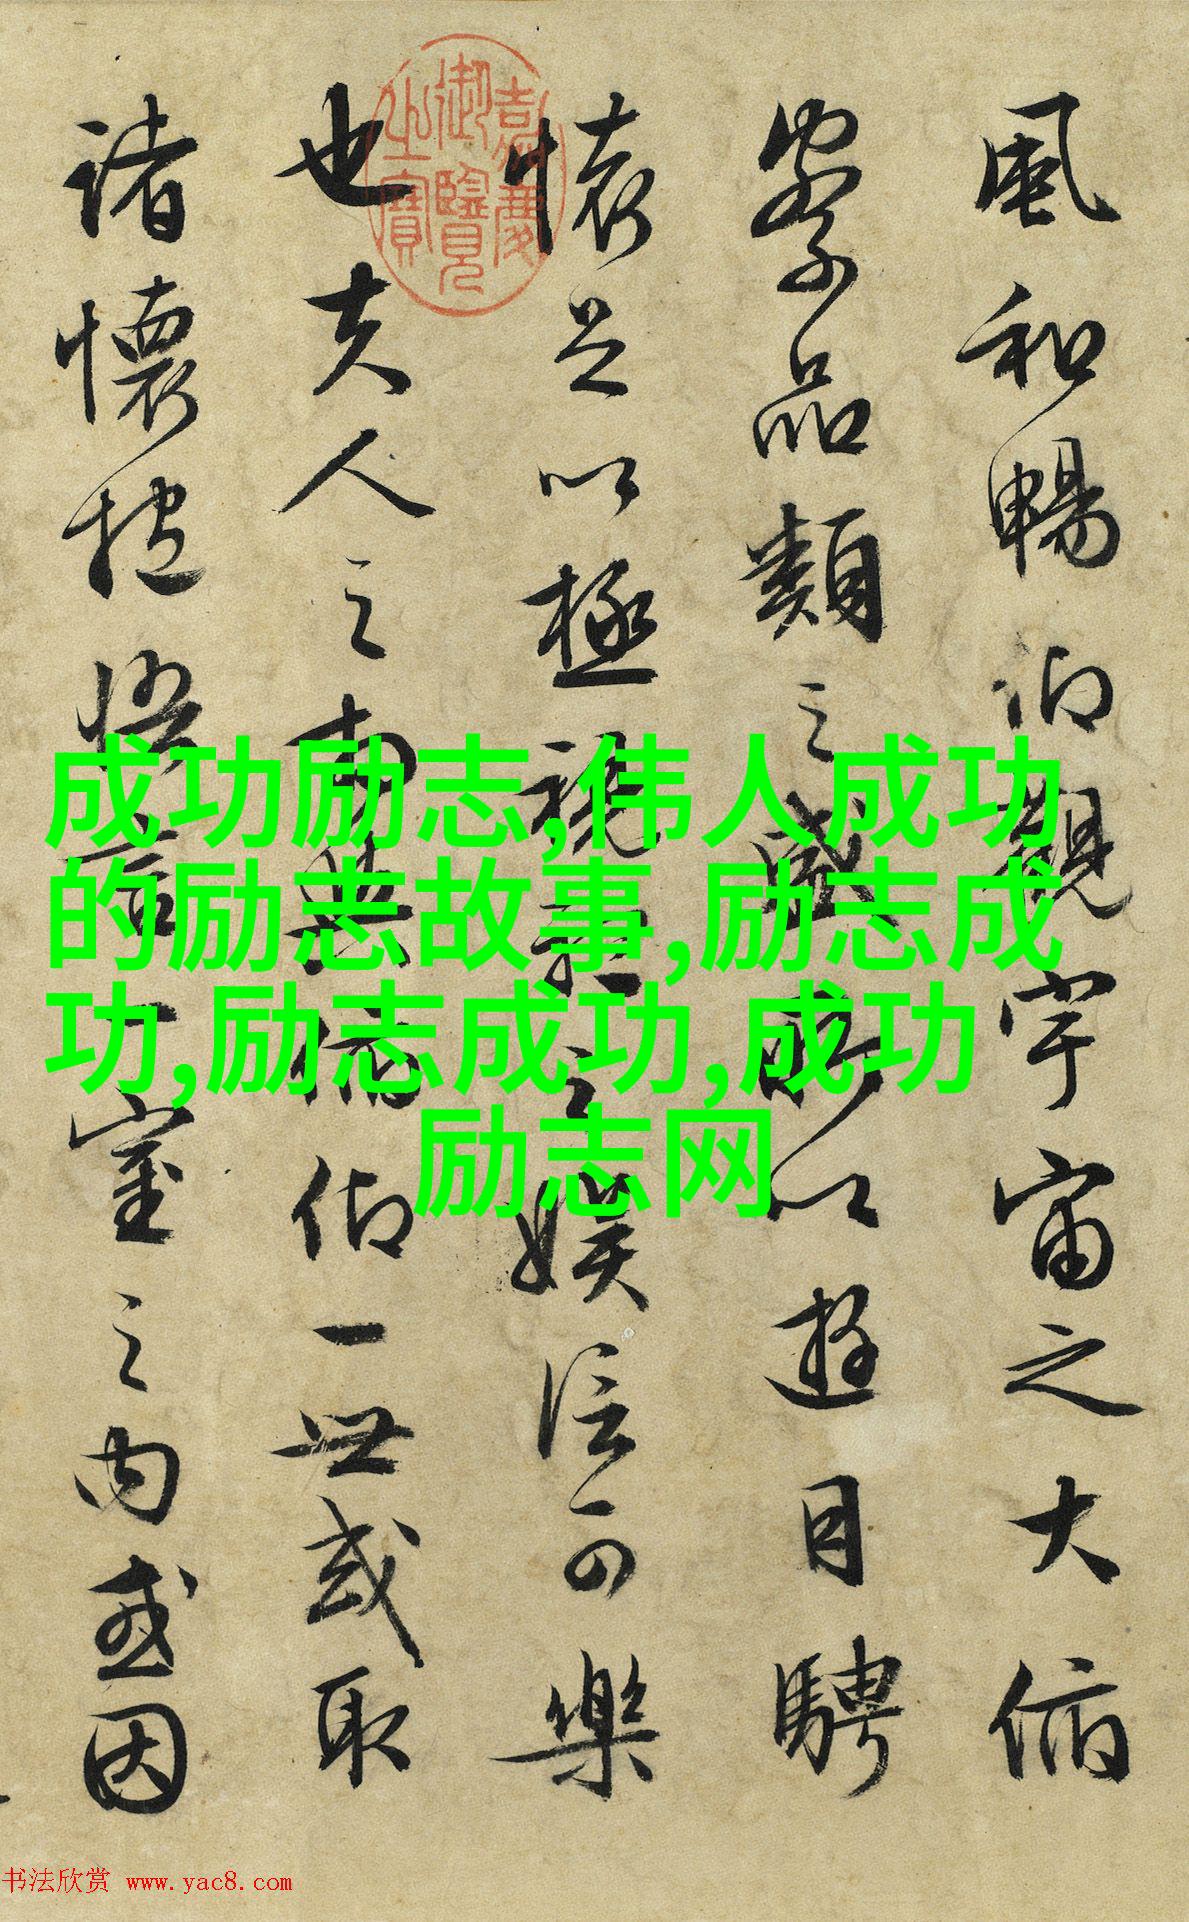 風和暢仰觀宇宙之大俯
察品類之盛所以遊目騁
懷足以極視聽之娛信可樂
也夫人之相與俯仰一世或取
諸懷抱悟言一室之內或因
嘉慶
御覽
之寶
成功励志,伟人成功
的励志故事,励志成
功,励志成功,成功
励志网
书法欣赏 www.yac8.com